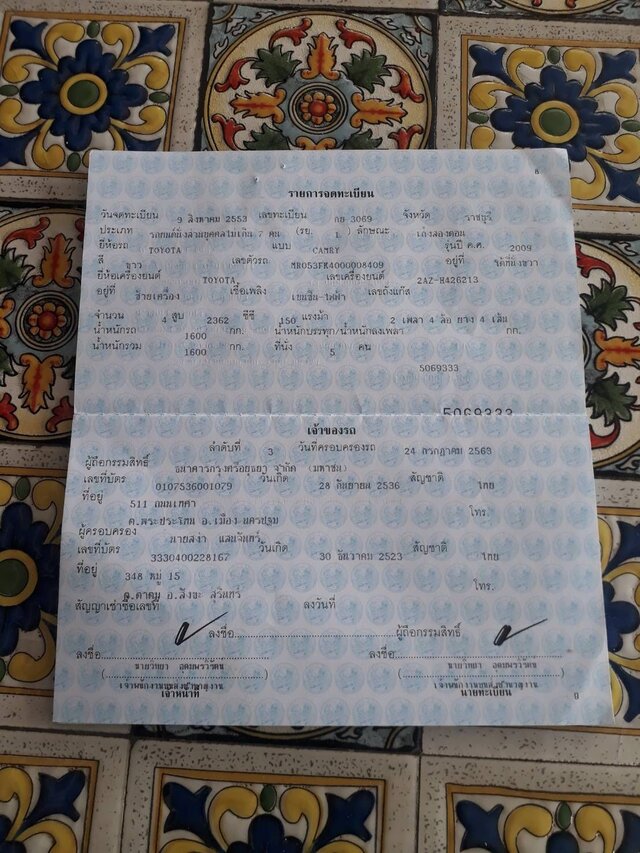 8
รายการจดทะเบียน
วันจดทะเบียน 9 สิงหาคม 2553 เลขทะเบียน กย-3069 จังหวัด ราชบุรี
ประเภท รถยนต์นั่งส่วนบุคคลไม่เกิน 7 คน (รย. 1) ลักษณะ เก๋งสองตอน
ยี่ห้อรถ TOYOTA แบบ CAMRY รุ่นปี ค.ศ. 2009
สี ขาว เลขตัวรถ MR053FK4000008409 อยู่ที่ ใต้ที่นั่งขวา
ยี่ห้อเครื่องยนต์ TOYOTA เลขเครื่องยนต์ 2AZ-H426213
อยู่ที่ ซ้ายเครื่อง เชื้อเพลิง เบนซิน-ไฟฟ้า เลขถังแก๊ส
จำนวน 4 สูบ 2362 ซีซี 150 แรงม้า 2 เพลา 4 ล้อ ยาง 4 เส้น
น้ำหนักรถ 1600 กก. น้ำหนักบรรทุก/น้ำหนักลงเพลา กก.
น้ำหนักรวม 1600 กก. ที่นั่ง 5 คน
5069333
5069333
เจ้าของรถ
ลำดับที่ 3 วันที่ครอบครองรถ 24 กรกฎาคม 2563
ผู้ถือกรรมสิทธิ์ ธนาคารกรุงศรีอยุธยา จำกัด (มหาชน)
เลขที่บัตร 0107536001079 วันเกิด 28 กันยายน 2536 สัญชาติ ไทย
ที่อยู่ 511 ถนนเทศา โทร.
ต.พระประโทน อ.เมือง นครปฐม
ผู้ครอบครอง นายสง่า แสนจันทร์
เลขที่บัตร 3330400228167 วันเกิด 30 ธันวาคม 2523 สัญชาติ ไทย
ที่อยู่ 348 หมู่ 15 โทร.
ต.ดาตุม อ.สังขะ สุรินทร์
สัญญาเช่าซื้อเลขที่ ลงวันที่
ลงชื่อ ผู้ถือกรรมสิทธิ์
ลงชื่อ ลงชื่อ
(นายวิทยา) (นายวิทยา)
เจ้าพนักงานขนส่งชำนาญงาน เจ้าพนักงานขนส่งชำนาญงาน
เจ้าหน้าที่ นายทะเบียน
9